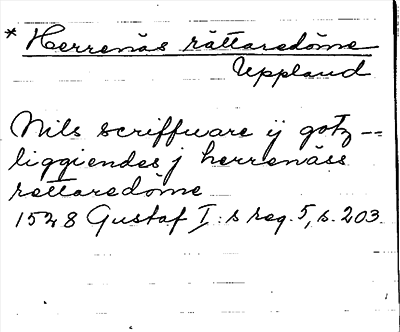 * Herrenäs rättaredöme
Uppland
Nils scriffuare ij gotz --
liggiendes j herrenäss
rettaredöme
1528 Gustaf I:s reg. 5, s. 203